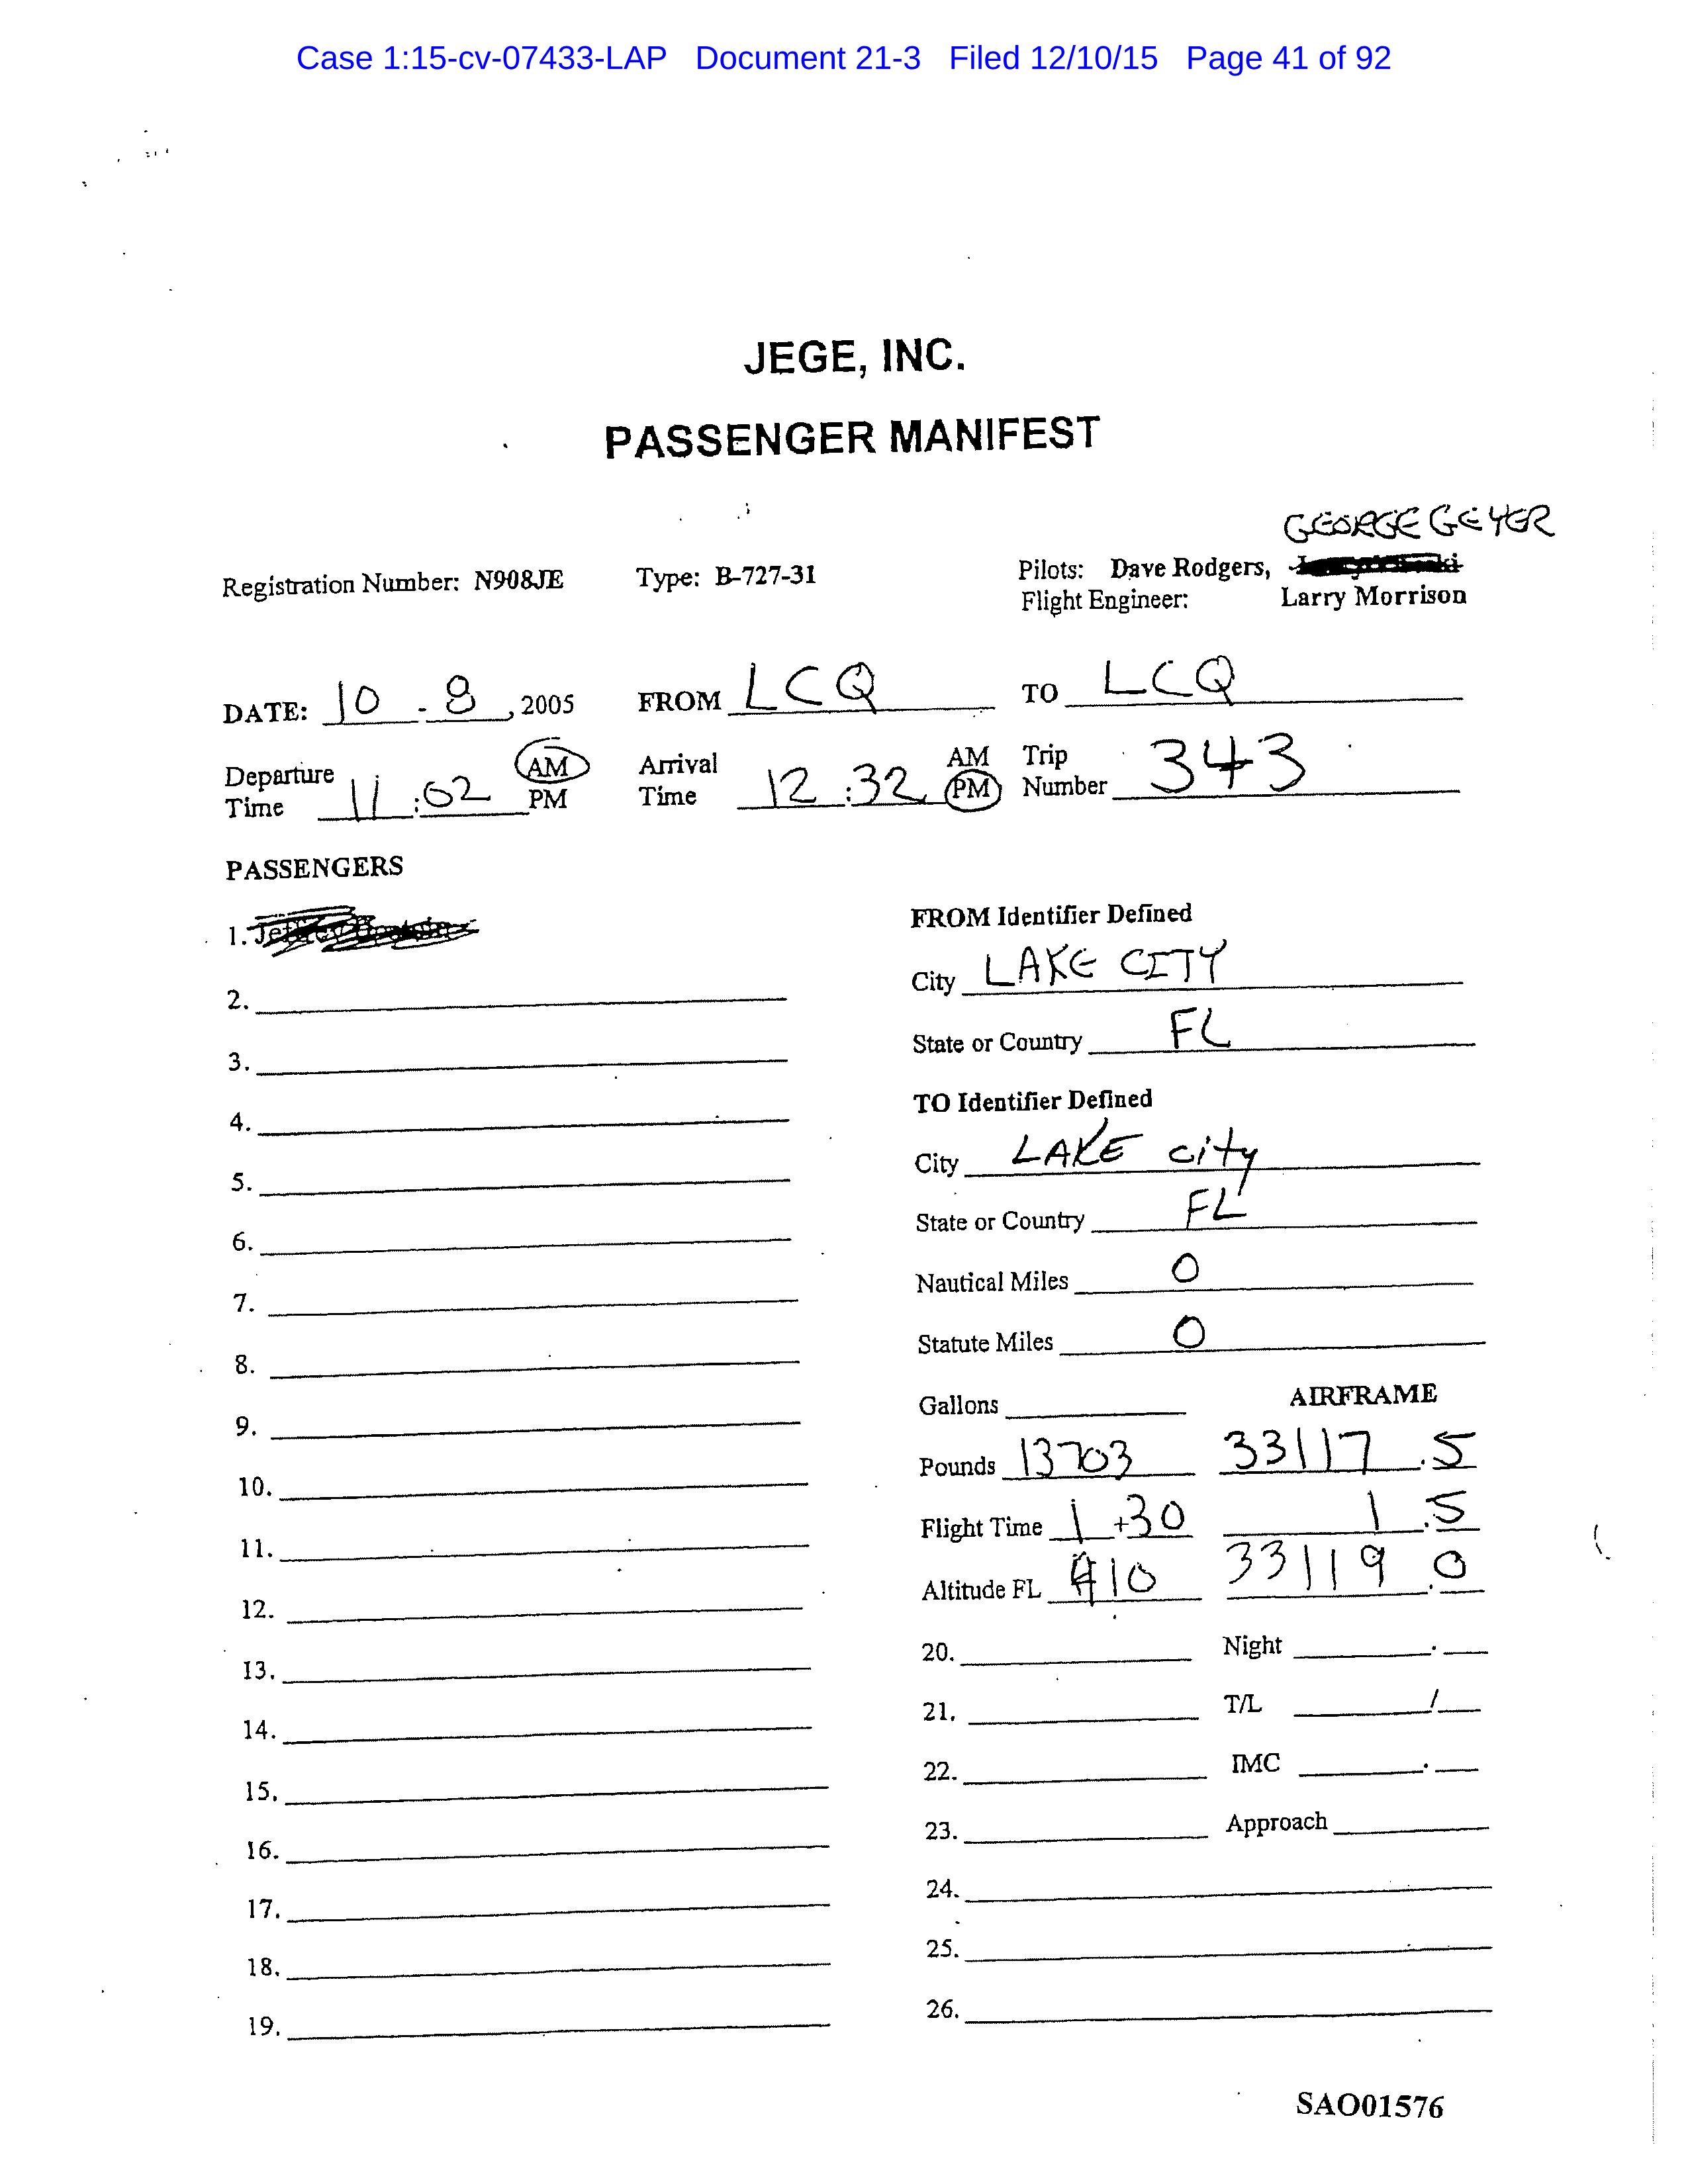 Case 1:15-cv-07433-LAP Document 21-3 Filed 12/10/15 Page 41 of 92
JEGE, INC.
PASSENGER MANIFEST
GEORGE GEYER
Registration Number: N908JE Type: B-727-31 Pilots: Dave Rodgers,
Flight Engineer: Larry Morrison
DATE: 10 - 8, 2005 FROM LCQ TO LCQ
Departure Time 11:02 AM PM Arrival Time 12:32 AM PM Trip Number 343
PASSENGERS
1. Jeffrey
2.
3.
4.
5.
6.
7.
8.
9.
10.
11.
12.
13.
14.
15.
16.
17.
18.
19.
FROM Identifier Defined
City LAKE CITY
State or Country FL
TO Identifier Defined
City LAKE city
State or Country FL
Nautical Miles 0
Statute Miles 0
Gallons AIRFRAME
Pounds 13703 33117.5
Flight Time 1+30 1.5
Altitude FL 410 33119.0
20. Night .
21. T/L /
22. IMC .
23. Approach
24.
25.
26.
SAO01576